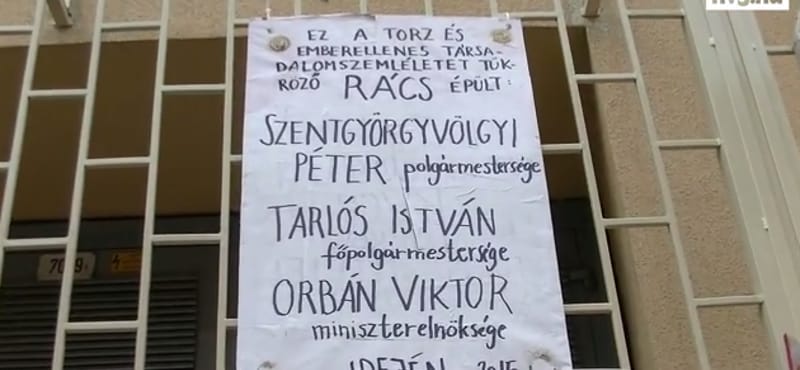 EZ A TORZ ÉS
EMBERELLENES TÁRSA-
DALOMSZEMLÉLETET TÜK-
RÖZŐ RÁCS ÉPÜLT:
SZENTGYÖRGYVÖLGYI
PÉTER polgármestersége
TARLÓS ISTVÁN
főpolgármestersége
ORBÁN VIKTOR
miniszterelnöksége
IDEJÉN 2015